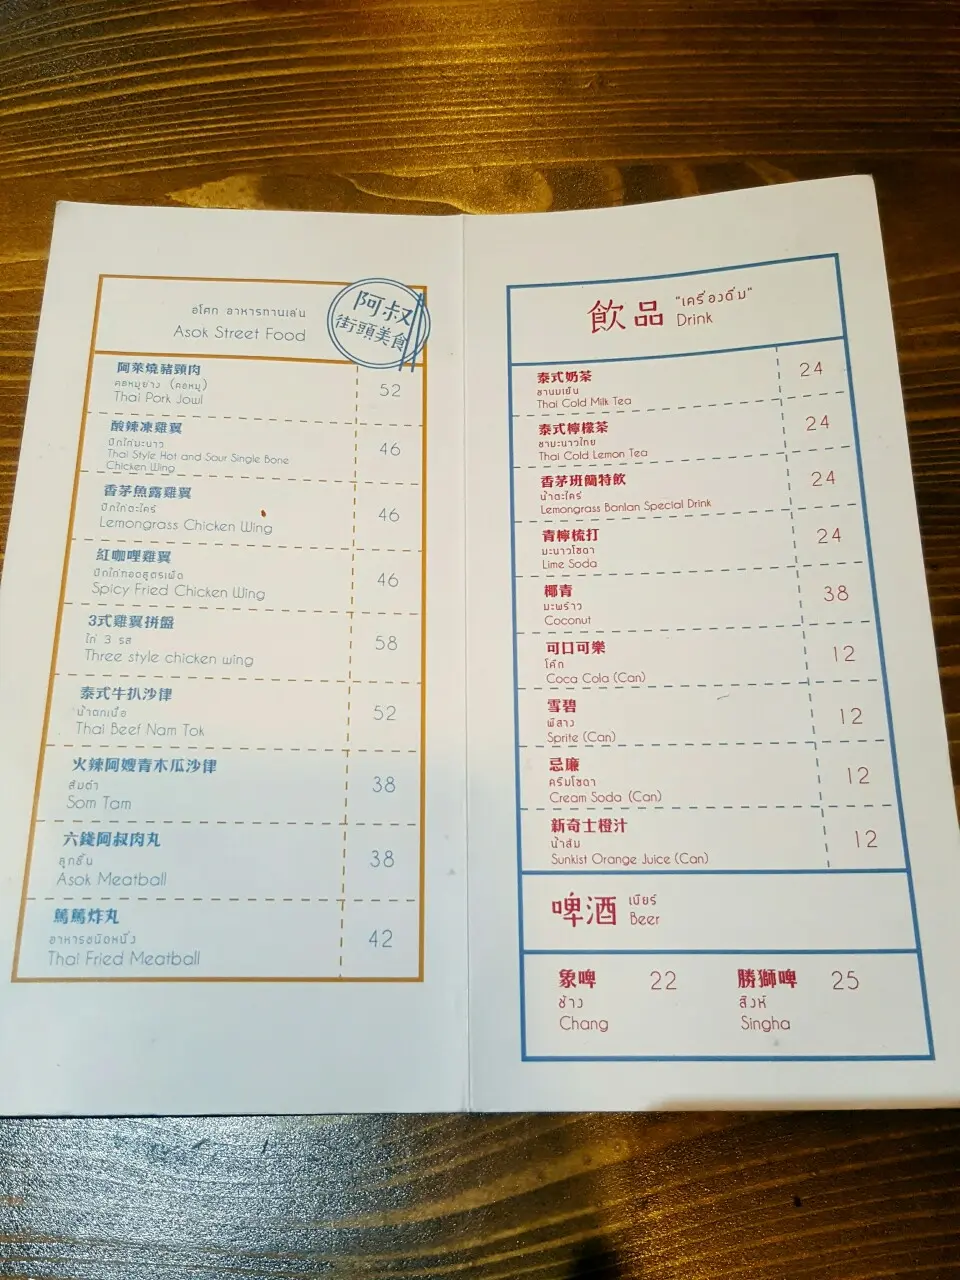 อโศก อาหารทานเล่น
Asok Street Food
阿叔
街頭美食
阿萊燒豬頸肉
คอหมูย่าง (คอหมู)
Thai Pork Jowl
52
酸辣凍雞翼
ปีกไก่มะนาว
Thai Style Hot and Sour Single Bone
Chicken Wing
46
香茅魚露雞翼
ปีกไก่ตะไคร้
Lemongrass Chicken Wing
46
紅咖哩雞翼
ปีกไก่ทอดสูตรเผ็ด
Spicy Fried Chicken Wing
46
3式雞翼拼盤
ไก่ 3 รส
Three style chicken wing
58
泰式牛扒沙律
น้ำตกเนื้อ
Thai Beef Nam Tok
52
火辣阿嫂青木瓜沙律
ส้มตำ
Som Tam
38
六錢阿叔肉丸
ลูกชิ้น
Asok Meatball
38
篤篤炸丸
อาหารชนิดหนึ่ง
Thai Fried Meatball
42
飲品
"เครื่องดื่ม"
Drink
泰式奶茶
ชานมเย็น
Thai Cold Milk Tea
24
泰式檸檬茶
ชามะนาวไทย
Thai Cold Lemon Tea
24
香茅班蘭特飲
น้ำตะไคร้
Lemongrass Banlan Special Drink
24
青檸梳打
มะนาวโซดา
Lime Soda
24
椰青
มะพร้าว
Coconut
38
可口可樂
โค๊ก
Coca Cola (Can)
12
雪碧
Sprite (Can)
12
忌廉
ครีมโซดา
Cream Soda (Can)
12
新奇士橙汁
น้ำส้ม
Sunkist Orange Juice (Can)
12
啤酒
เบียร์
Beer
象啤 22
ช้าง
Chang
勝獅啤 25
สิงห์
Singha